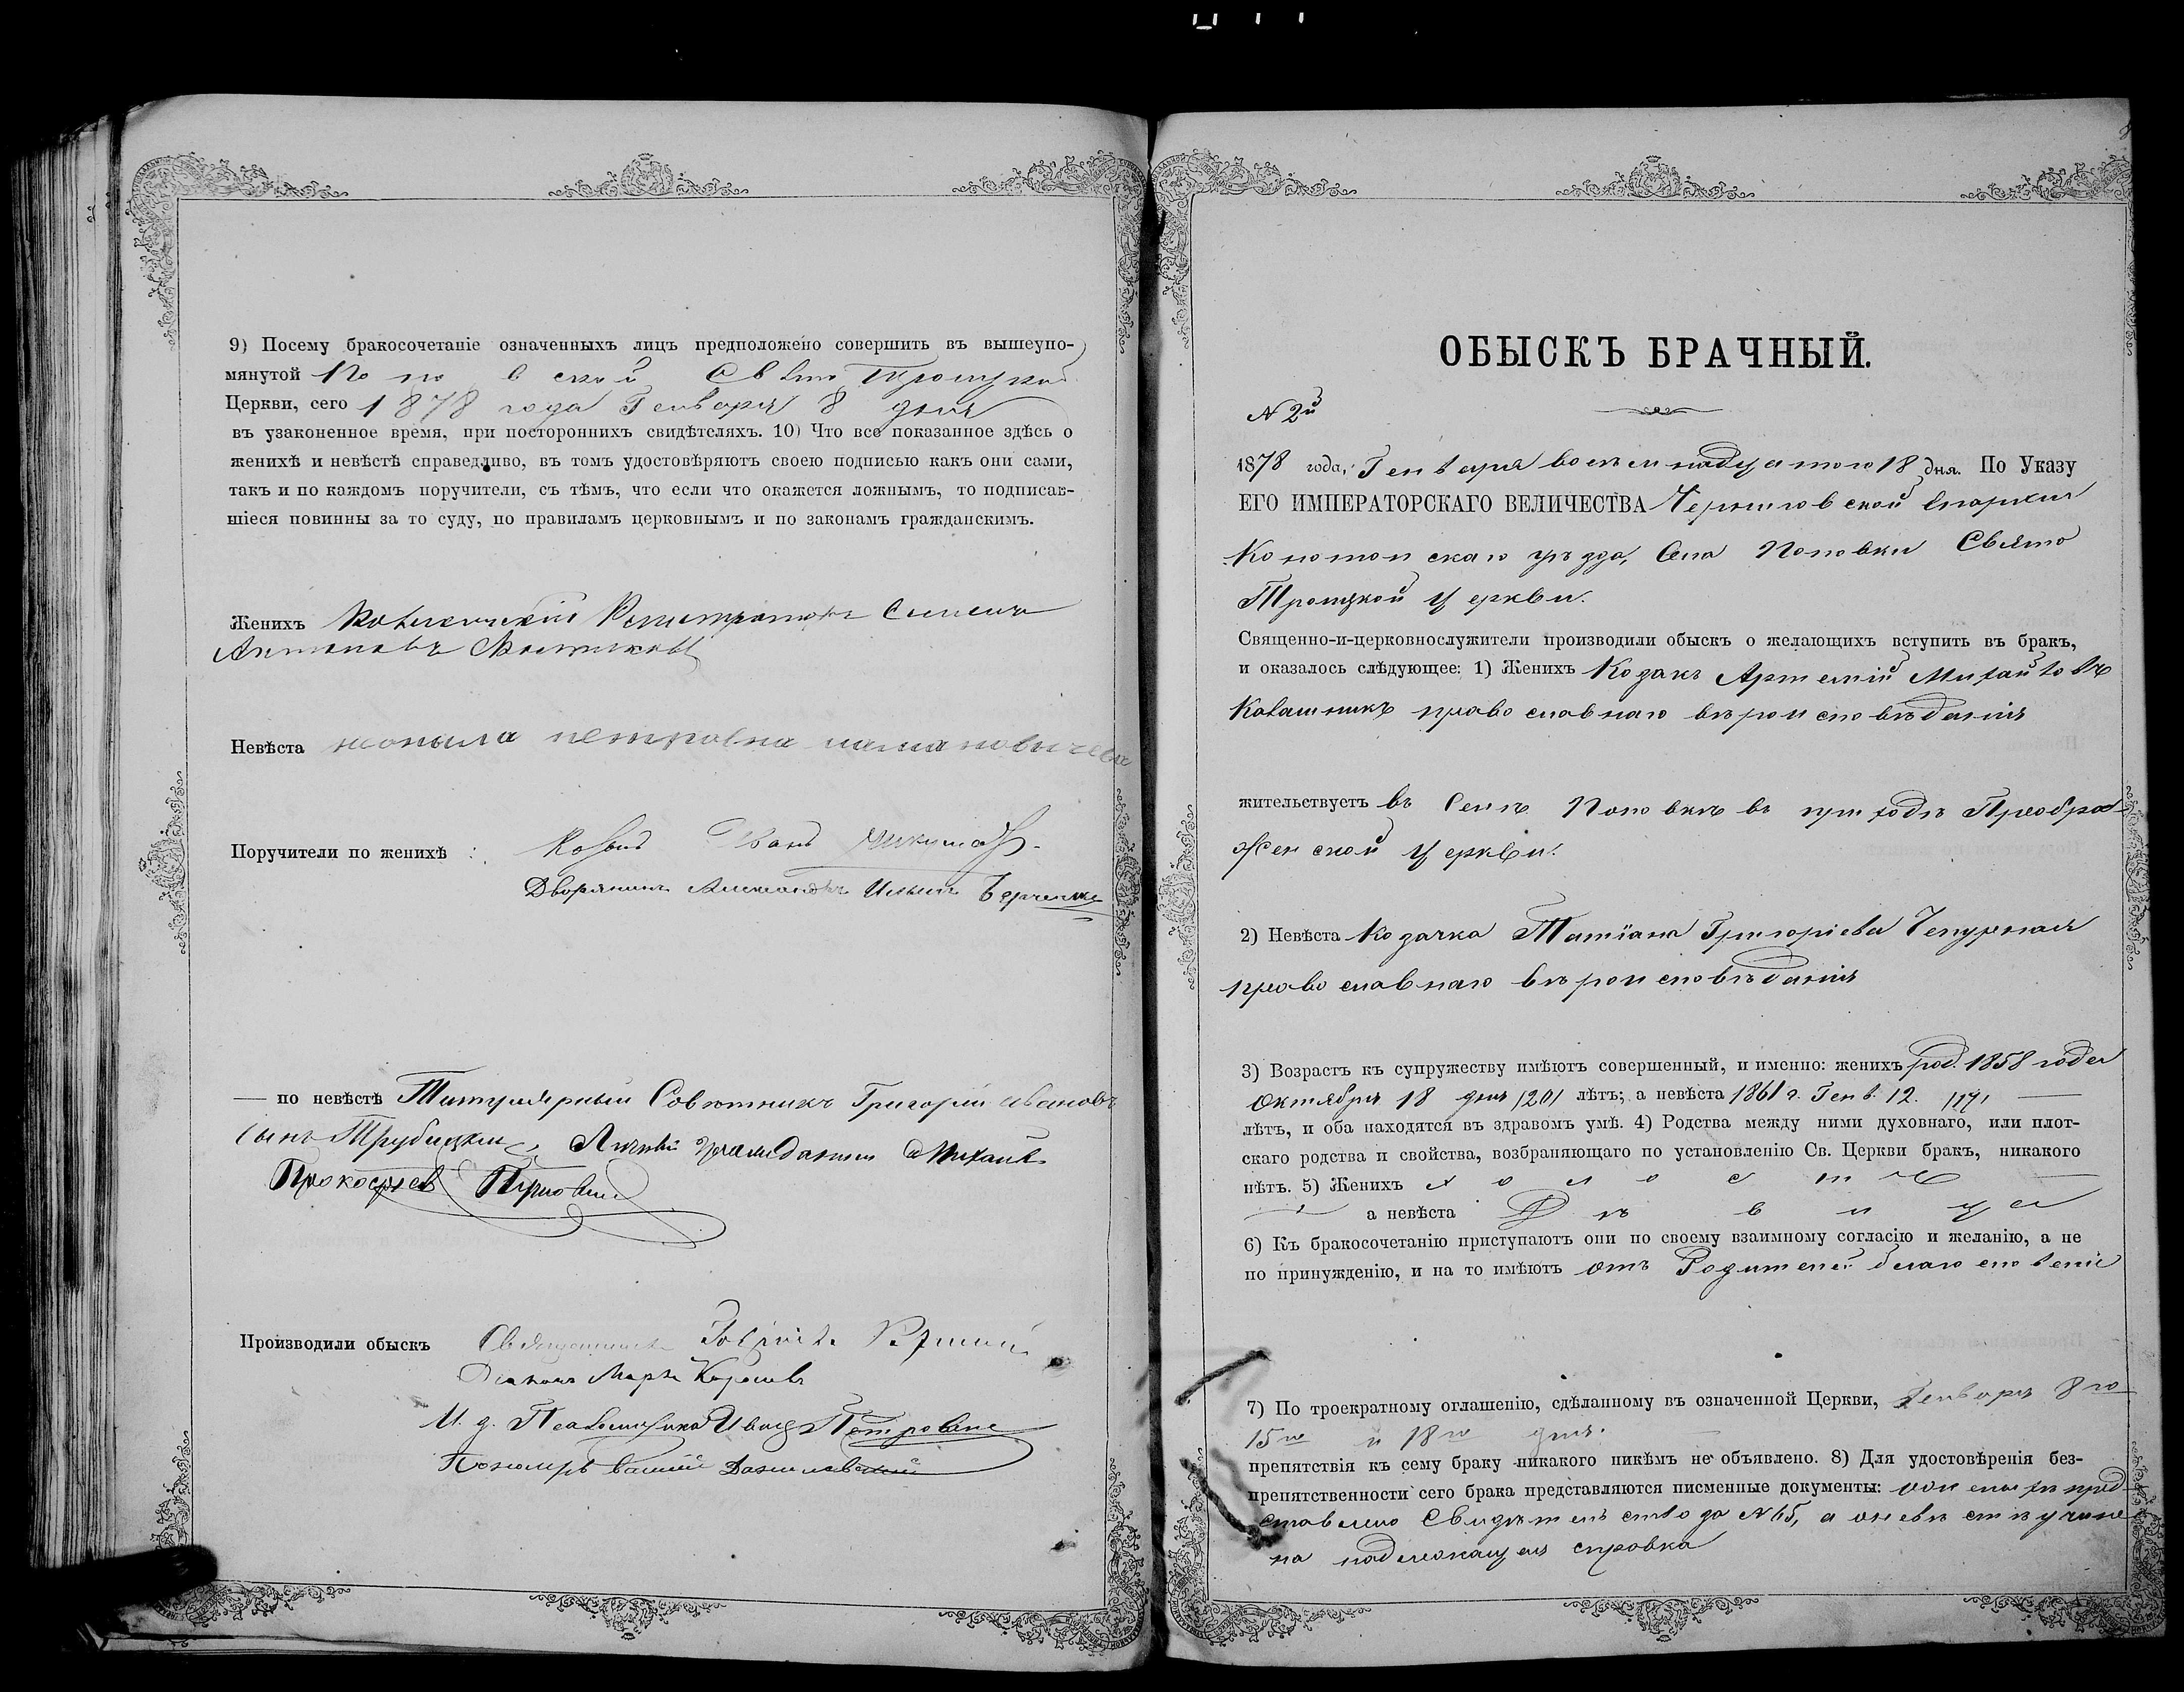 9) Посему бракосочетаніе означенныхъ лицъ предположено совершить въ вышеупо-
мянутой Поповской Свято Троицкой
Церкви, сего 1878 года Генваря 8 дня
въ узаконенное время, при постороннихъ свидѣтеляхъ. 10) Что все показанное здѣсь о
женихѣ и невѣстѣ справедливо, въ томъ удостовѣряютъ своею подписью какъ они сами,
такъ и по каждомъ поручители, съ тѣмъ, что если что окажется ложнымъ, то подписав-
шіеся повинны за то суду, по правиламъ церковнымъ и по законамъ гражданскимъ.
Женихъ Регистраторъ
Антоновъ
Невѣста петровна
Поручители по женихѣ : Иванъ
Дворянинъ Александръ Ильинъ
— по невѣстѣ Титулярный Совѣтникъ Григорій Ивановъ
сынъ Трубицкій, Личный гражданинъ Михаилъ
Прокофіевъ
Производили обыскъ Священникъ
Діаконъ Маркъ
И. д. Псаломщика Иванъ
Пономарь
ОБЫСКЪ БРАЧНЫЙ.
N 2й
1878 года, Генваря восемнадцатого 18 дня. По Указу
ЕГО ИМПЕРАТОРСКАГО ВЕЛИЧЕСТВА Черниговской епархіи
Конотопскаго уѣзда, Села Поповки Свято
Троицкой Церкви.
Священно-и-церковнослужители производили обыскъ о желающихъ вступить въ бракъ,
и оказалось слѣдующее: 1) Женихъ Козакъ Артемій Михайловъ
православнаго вѣроисповѣданія
жительствуетъ въ Селѣ Поповкѣ въ приходѣ Преобра-
женской Церкви.
2) Невѣста Козачка Татіана Григоріева Чепурная
православнаго вѣроисповѣданія
3) Возрастъ къ супружеству имѣютъ совершенный, и именно: женихъ род. 1858 года
Октября 18 дня /20/ лѣтъ; а невѣста 1861 г. Генв. 12. /17/ —
лѣтъ, и оба находятся въ здравомъ умѣ. 4) Родства между ними духовнаго, или плот-
скаго родства и свойства, возбраняющаго по установленію Св. Церкви бракъ, никакого
нѣтъ. 5) Женихъ холостъ —
а невѣста Дѣвица
6) Къ бракосочетанію приступаютъ они по своему взаимному согласію и желанію, а не
по принужденію, и на то имѣютъ отъ Родителей благословеніе
7) По троекратному оглашенію, сдѣланному въ означенной Церкви, Генваря 8го
15го и 18го дня.
препятствія къ сему браку никакого никѣмъ не объявлено. 8) Для удостовѣренія без-
препятственности сего брака представляются писменные документы: о женихѣ пред-
ставлено Свидѣтельство за N 65, а о невѣстѣ учине-
на надлежащая справка